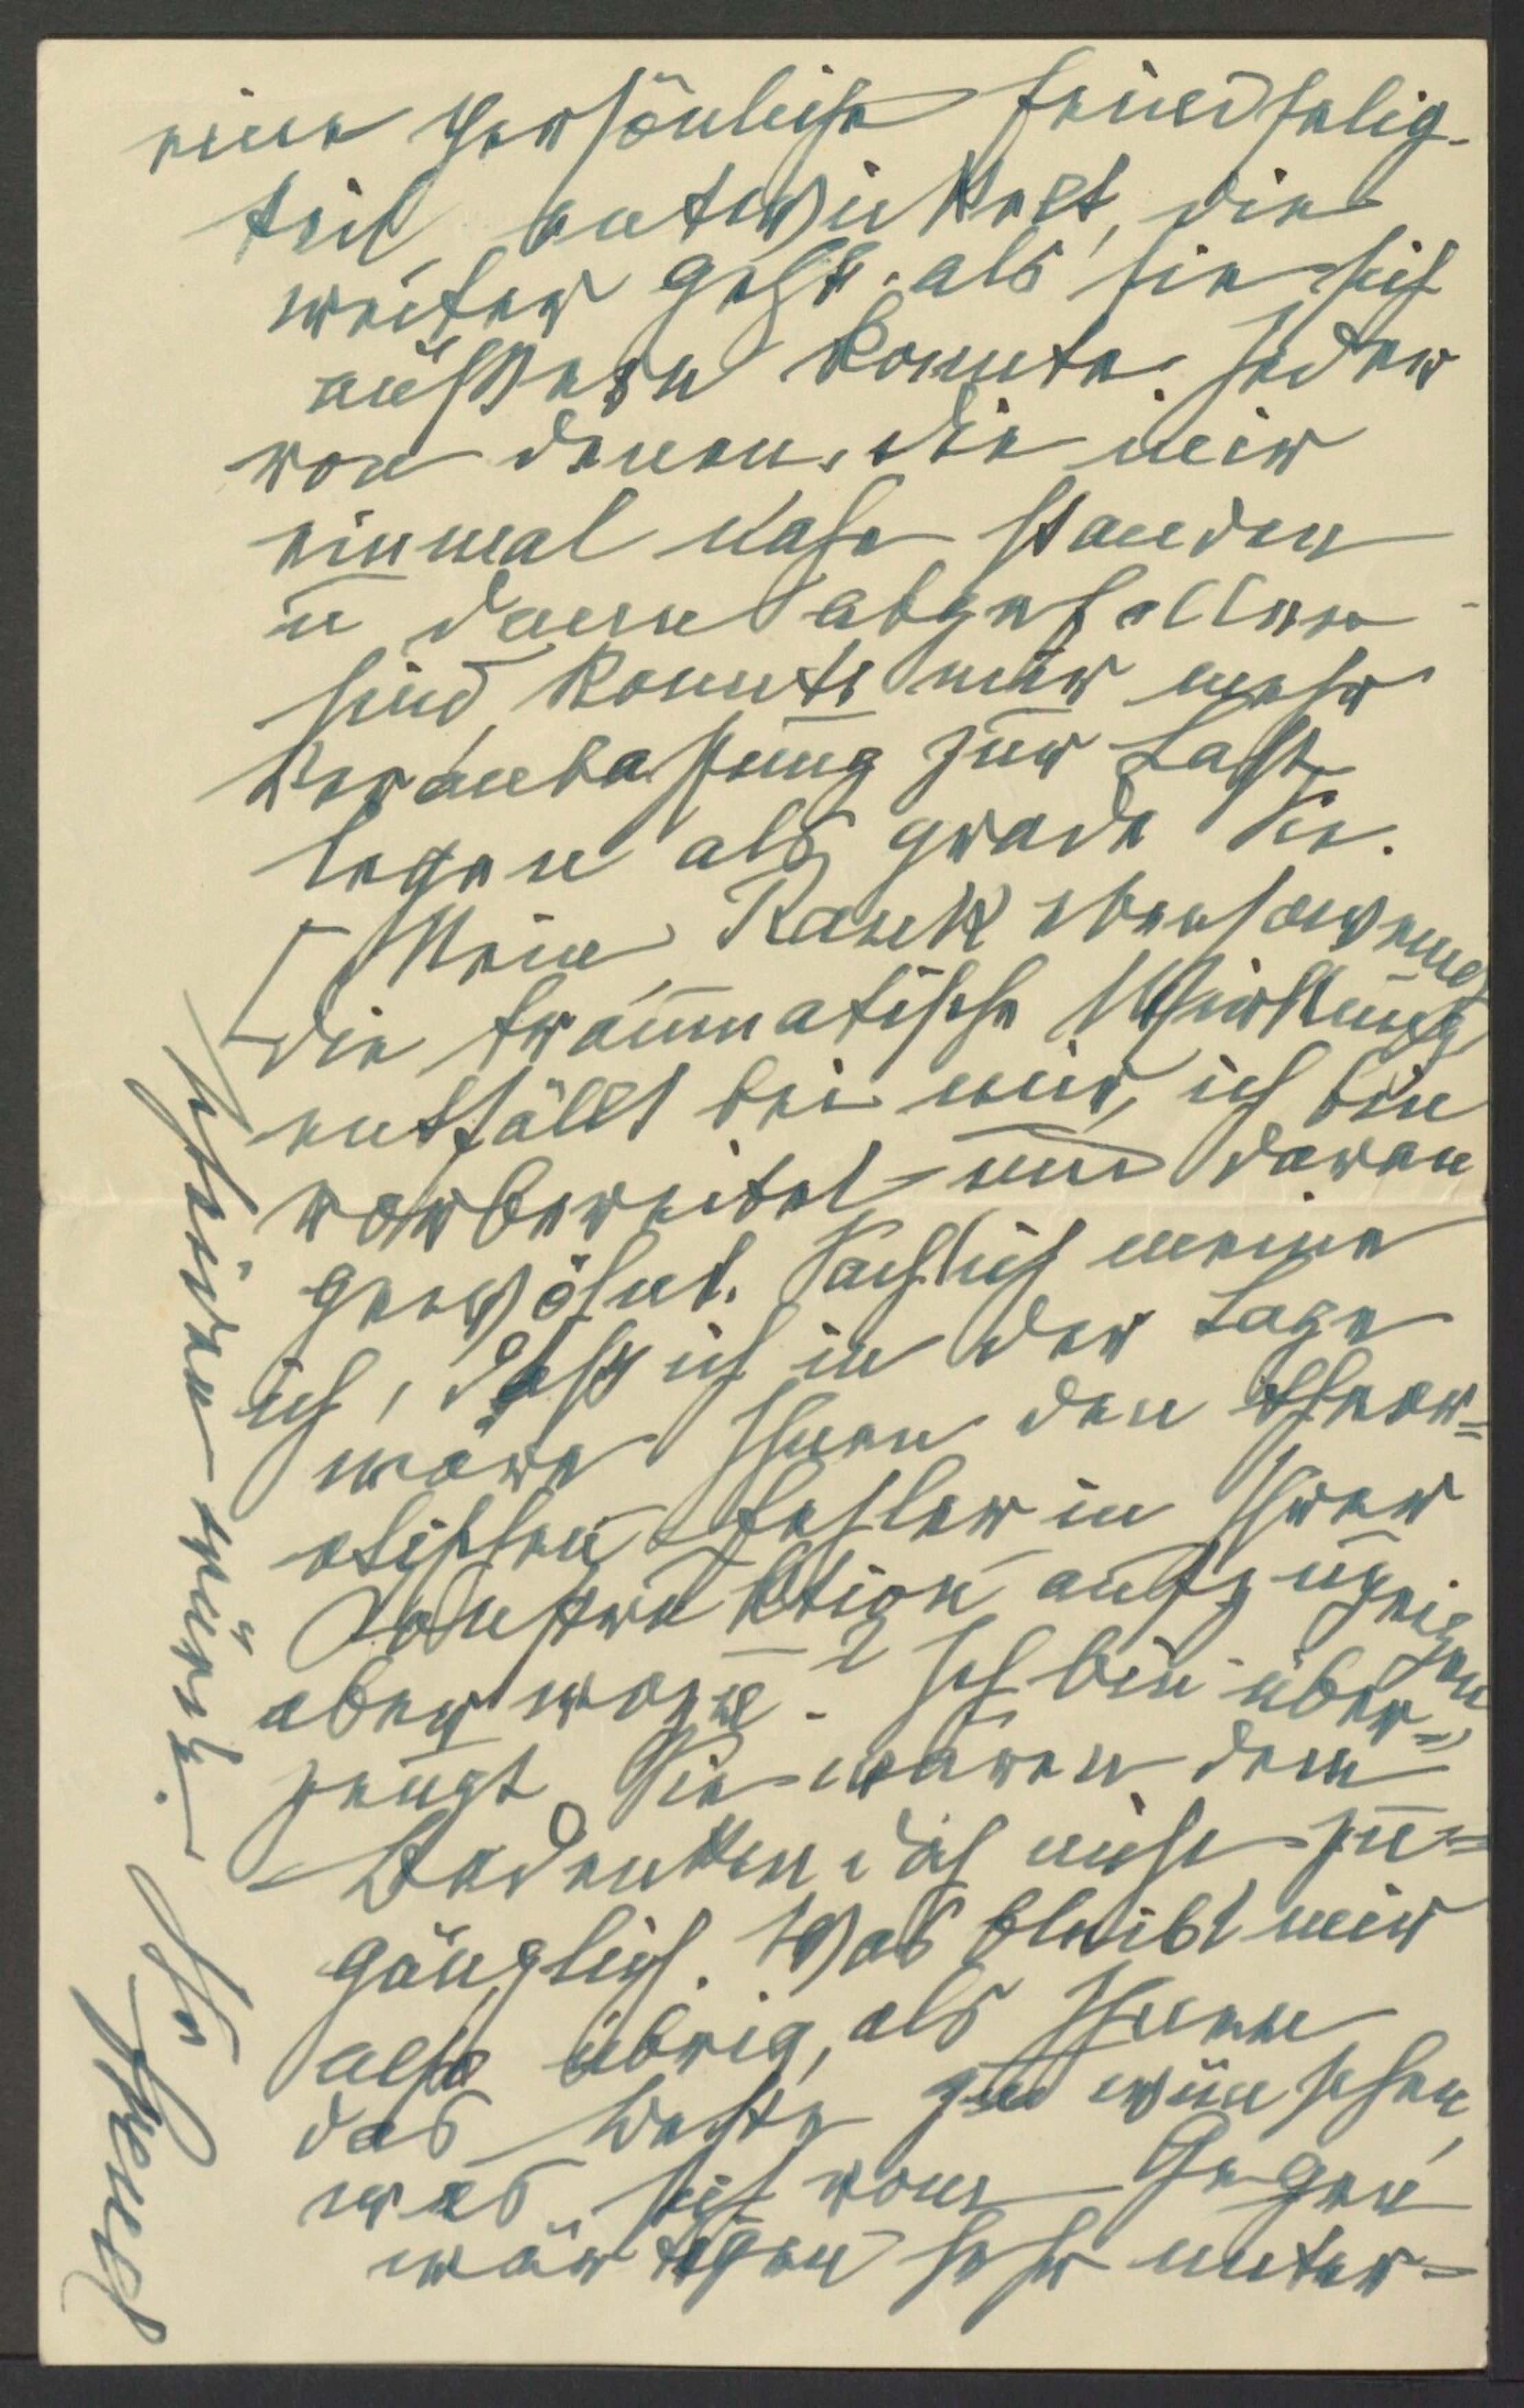 eine persönliche Feindselig-
keit entwickelt, die
weiter geht als sie sich
äußern konnte. Jeder
von denen, die mir
einmal nahe standen
u dann abgefallen
sind, konnte mir mehr
Veranlassung zur Last
legen als grade Sie.
[Nein, Rank ebensowenig]
Die traumatische Wirkung
entfällt bei mir, ich bin
vorbereitet und daran
gewöhnt. Sachlich meine
ich, daß ich in der Lage
wäre Ihnen den theor=
etischen Fehler in Ihrer
Konstruktion aufzuzeigen
aber wozu? Ich bin über=
zeugt Sie wären dem
Bedenken doch nicht zu=
gänglich. Was bleibt mir
also übrig, als Ihnen
das Beste zu wünschen,
was sich vom Gegen
wärtigen sehr unter=
scheiden würde.
Ihr Freud